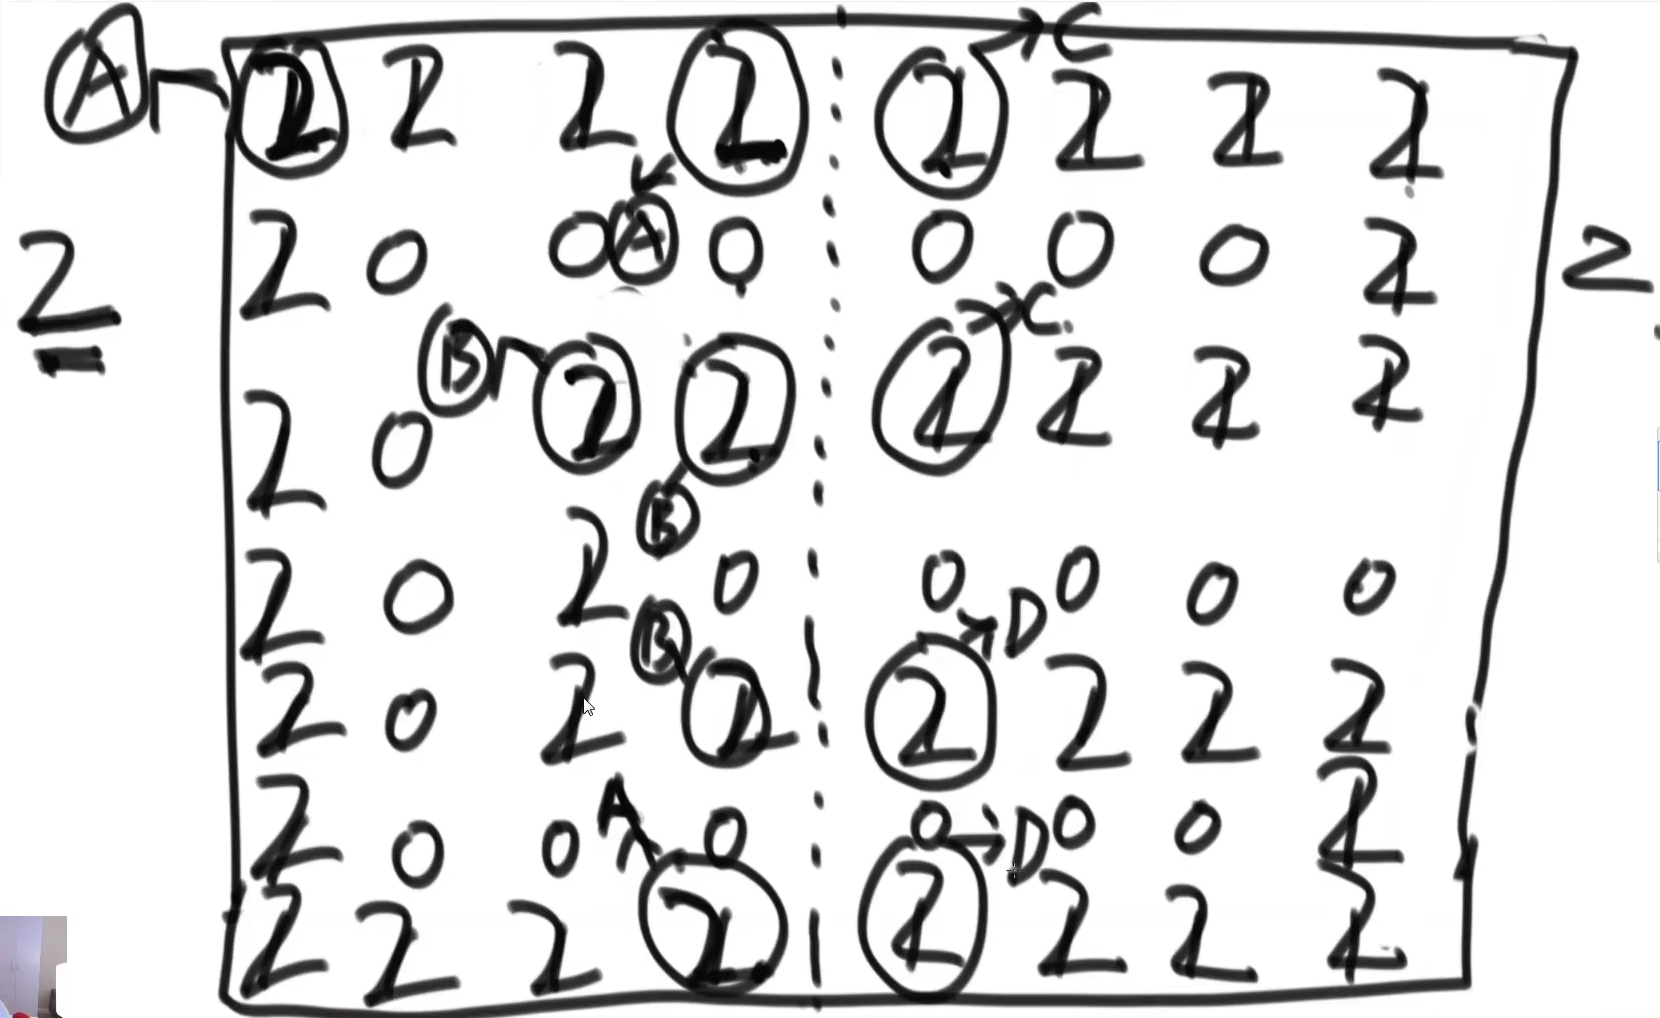 A 2 2 2 2 2 → C 2 2 2
2 0 0 A 0 0 0 0 2
2 2
B 2 2 2 → C 2 2 2
2 0
B
2 0 2 0 0 0 0 0
B → D
2 0 2 2 2 2 2 2
2 0 0 A 0 0 → D 0 0 2
2 2 2 2 2 2 2 2